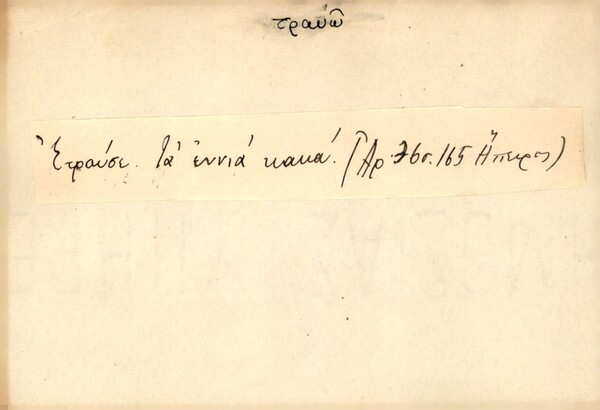 τραυῶ
Ἐτραύσε. Τά ἐννιά κακά. (Ἀρ. 76 σ. 165 Ἤπειρος)